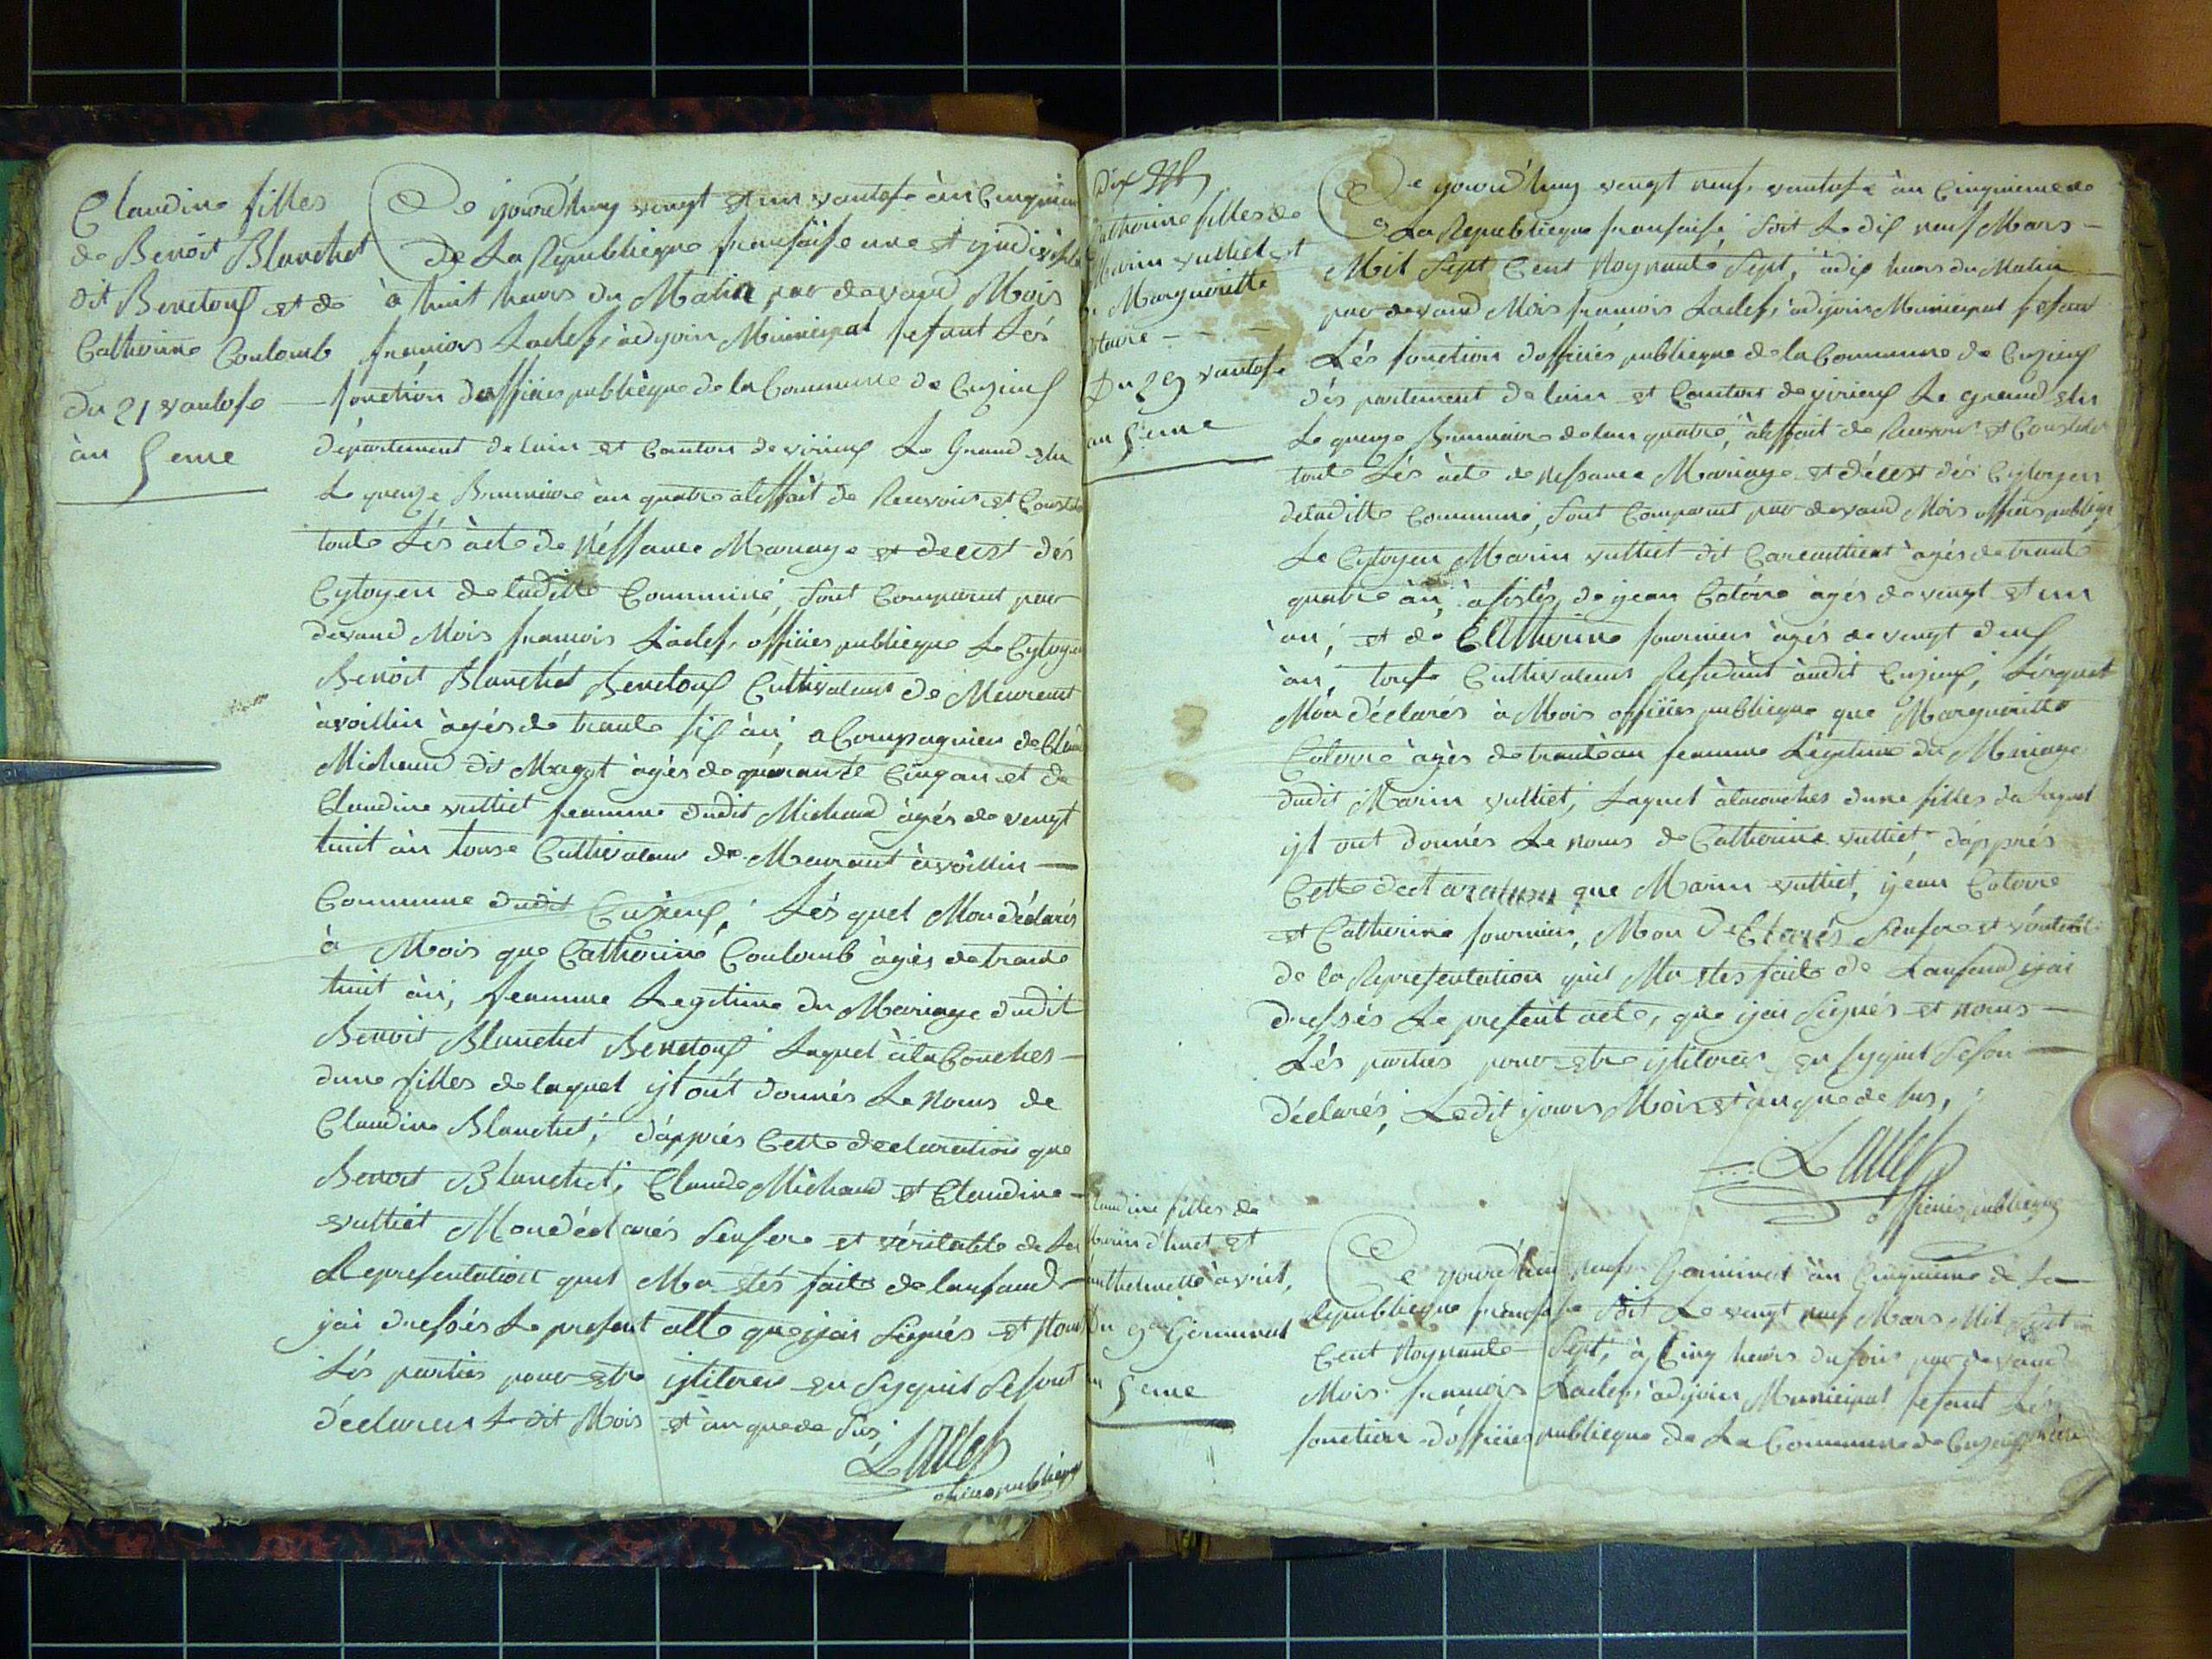 Claudine filles
de Benoit Blanchet
dit Benetouf et de
Catherine Coulomb
du 21 vantose
àn 5eme
Ce yjourdhuy vengt et un vantose àn Cinquieme
de La Republieque fransaise une et yndivisible
à huit heures du Matin par devand Mois
francois Ladef, àdyoin Municipal fesant Lés
fonction dofficiés publieque de la Commune de Cuzieuf
département de lain et Canton de virieuf Le Grand elu
Le quenze Brumaire àn quatre aleffait de Recevoir et Constate
toute Lés àcte de Néssance Mariage et decest dés
Cytoyen de laditte Commune, sont Comparut par
devand Mois francois Ladef, officiés publieque Le Cytoyen
Benoit Blanchet Benetouf Cultivateur de Meurent
àvoillin àgés de trante sif àn, a Compagnien de Claud
Michaud dit Magot àgés de quarante Cinq an et de
Claudine vulliet feamme dudit Michaud àgés de vengt
huit àn touse Cultivateur de Meurant àvoillin
Commune dudit Cuzieuf, Lésquel Mon déclarés
à Mois que Catherine Coulomb àgés de trante
huit àn, feamme Legitime du Mariage dudit
Benoit Blanchet Benetouf Laquel àla Couches
dune filles de laquel yl ont donnés Le Noms de
Claudine Blanchet, dapprés Cette declaration que
Benoit Blanchet, Claude Michaud et Claudine
vulliet Mon déclarés sensere et véritable de La
Representation quil Ma etés faite de lansfand
jai dressés Le present acte que jai Signés et Nom
Lés parties pour etre ylliterés en syquil Sesont
déclarer Le dit Mois et àn que de sus,
Ladef
officiés publieque
Catherine filles de
Marin vulliet et
de Margueritte
Cotaire
Du 29 vantose
an 5eme
Ce yjourdhuy vengt neuf vantose àn Cinquieme de
La Republieque fransaise, soit Le dif neuf Mars
Mil Sept Cent Noynante Sept, à dif heures du Matin
par devand Mois francois Ladef, àdyoin Municipal fesant
Lés fonction dofficiés publieque de la Commune de Cuzieuf
dés partement de lain et Canton de virieuf Le Grand elu
Le quenze Brumaire de lan quatre, àleffait de Recevoir et Constater
toute Lés àcte de Nessance Mariage et décest dés Cytoyen
de laditte Commune, sont Comparut par devand Mois officiés publieque
Le Cytoyen Marin vulliet dit Careuttient àgés de trante
quatre àn, àsistés de yean Cotéire àgés de vengt et un
àn, et de Catherine fournier àgés de vengt deuf
àn, touse Cultivateur Residant àudit Cuzieuf, Lésquel
Mon déclarés à Mois officiés publieque que Margueritte
Coterre àgés de trante àn feamme Légitime du Mariage
dudit Marin vulliet, Laquel àlacouches dune filles de Laquel
yl ont donnés Le noms de Catherine vulliet dapprés
Cette declaration que Marin vulliet, yean Coterre
et Catherine fournier, Mon Déclarés sensere et véritable
de la Representation quil Ma etes faite de Lansfand yjai
dressés Le present acte, que yjai Signés et noms
Lés parties pour etre ylliterés en syquil Seson
déclarés, Ledit yjours Mois et àn que de sus,
Ladef
officiés publieque
Claudine filles de
Marin d'huet et
anthelmette àvrit,
Du 9e Germinal
an 5eme
Ce yjourdhui neuf Germinal àn Cinquieme de La
Republieque fransaise soit Le vengt neuf Mars Mil Sept
Cent Noynante Sept, à Cinq heures du soir par devand
Mois francois Ladef, àdyoin Municipal fesant Lés
fonction dofficiés publieque de La Commune de Cuzieuf